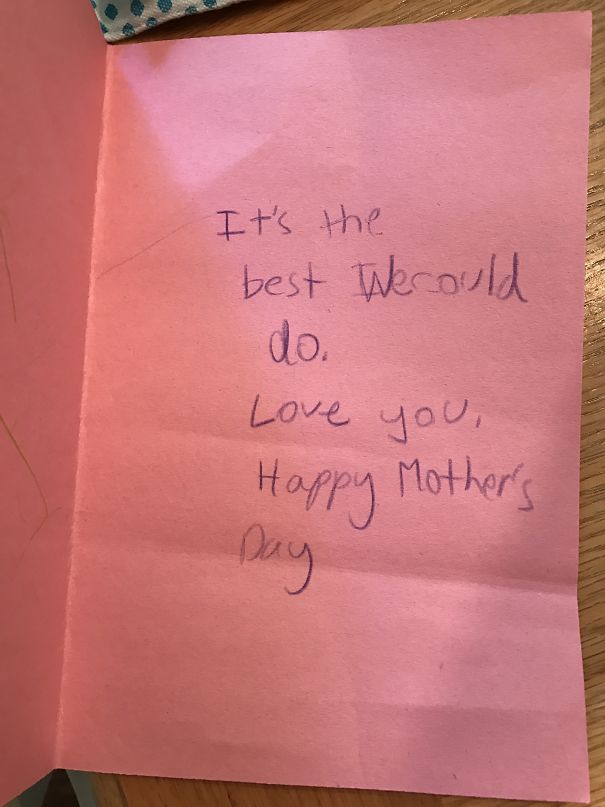 It's the
best We could
do.
Love you,
Happy Mother's
Day